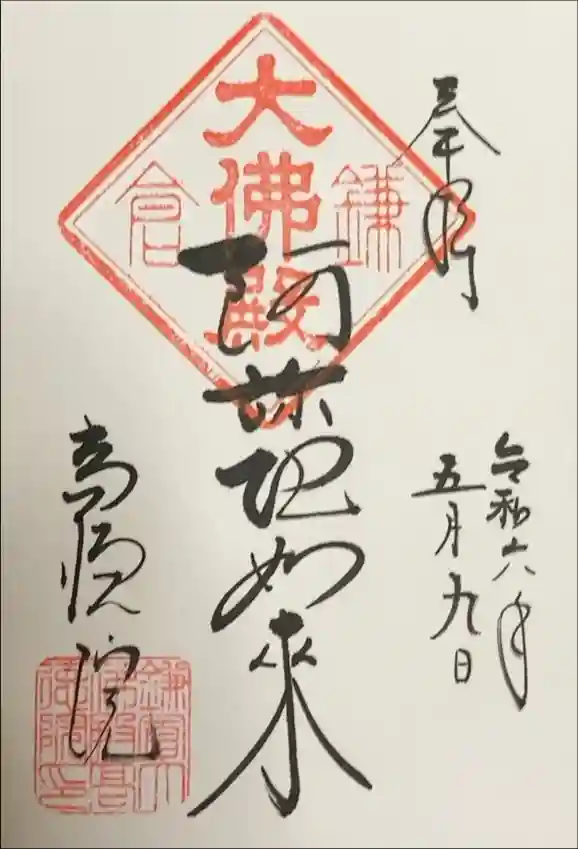 奉拝
令和六年
五月九日
大佛殿
鎌倉
阿弥陀如来
高徳院